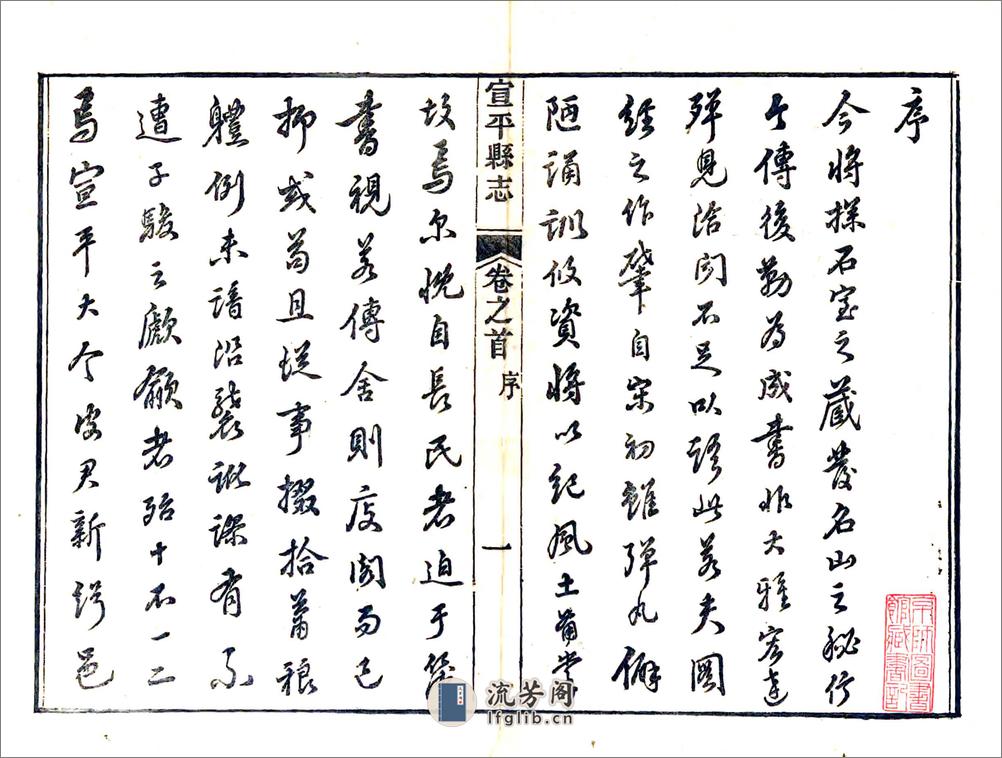 序
今將探石室之藏發名山之秘行
今傳後勒為成書非大雅宏達
殫見洽聞不足以語此若夫圖
經之作肇自宋初雖彈丸僻
陋誦訓攸資將以紀風土備掌
宣平縣志 卷之首 序 一
故焉尔晚自長民者迫于簿
書視若傳舍則庋閣而已
抑或苟且從事掇拾蕭稂
軆例未諳沿襲訛謬有不
遭子駿之者殆十不一二
焉宣平大令皮君新邑
京師圖書
館藏書記
流芳阁
lfglib.cn